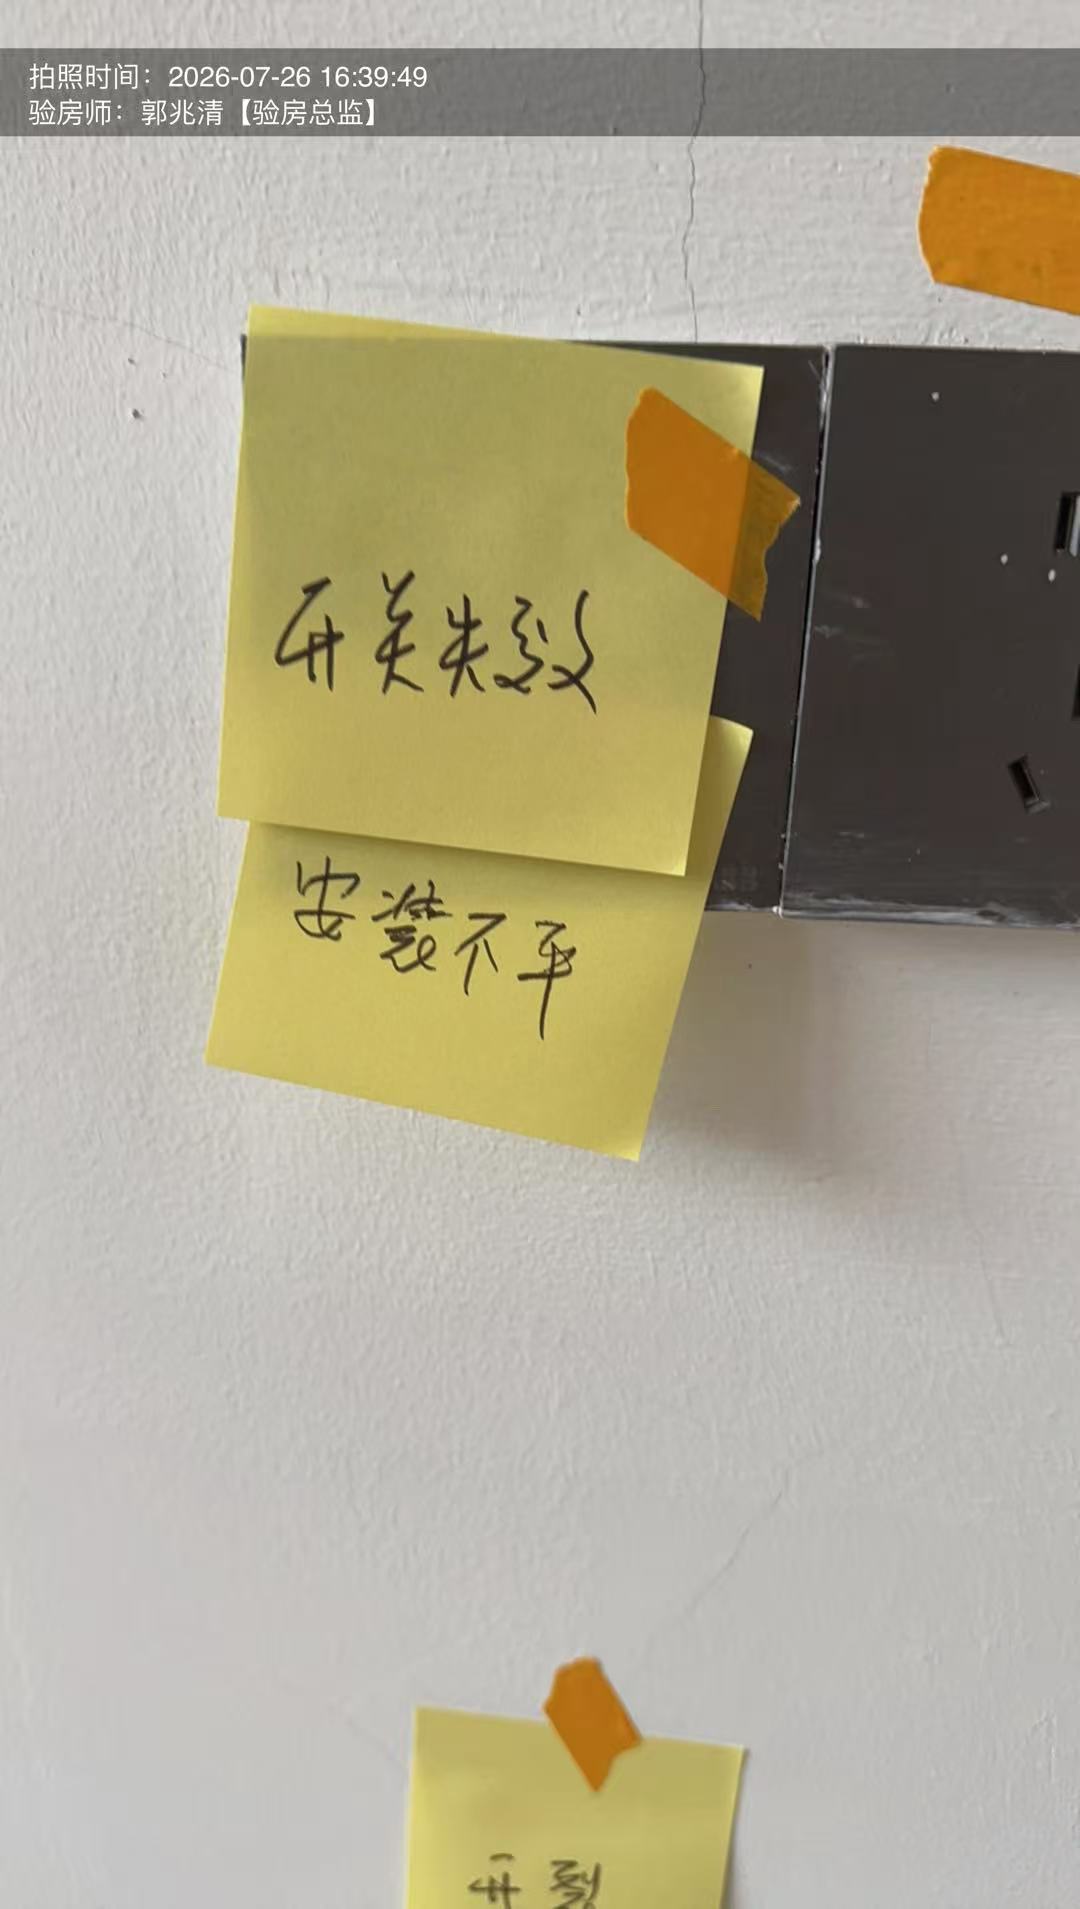 拍照时间：2026-07-26 16:39:49
验房师：郭兆清【验房总监】
开关失效
安装不平
开裂